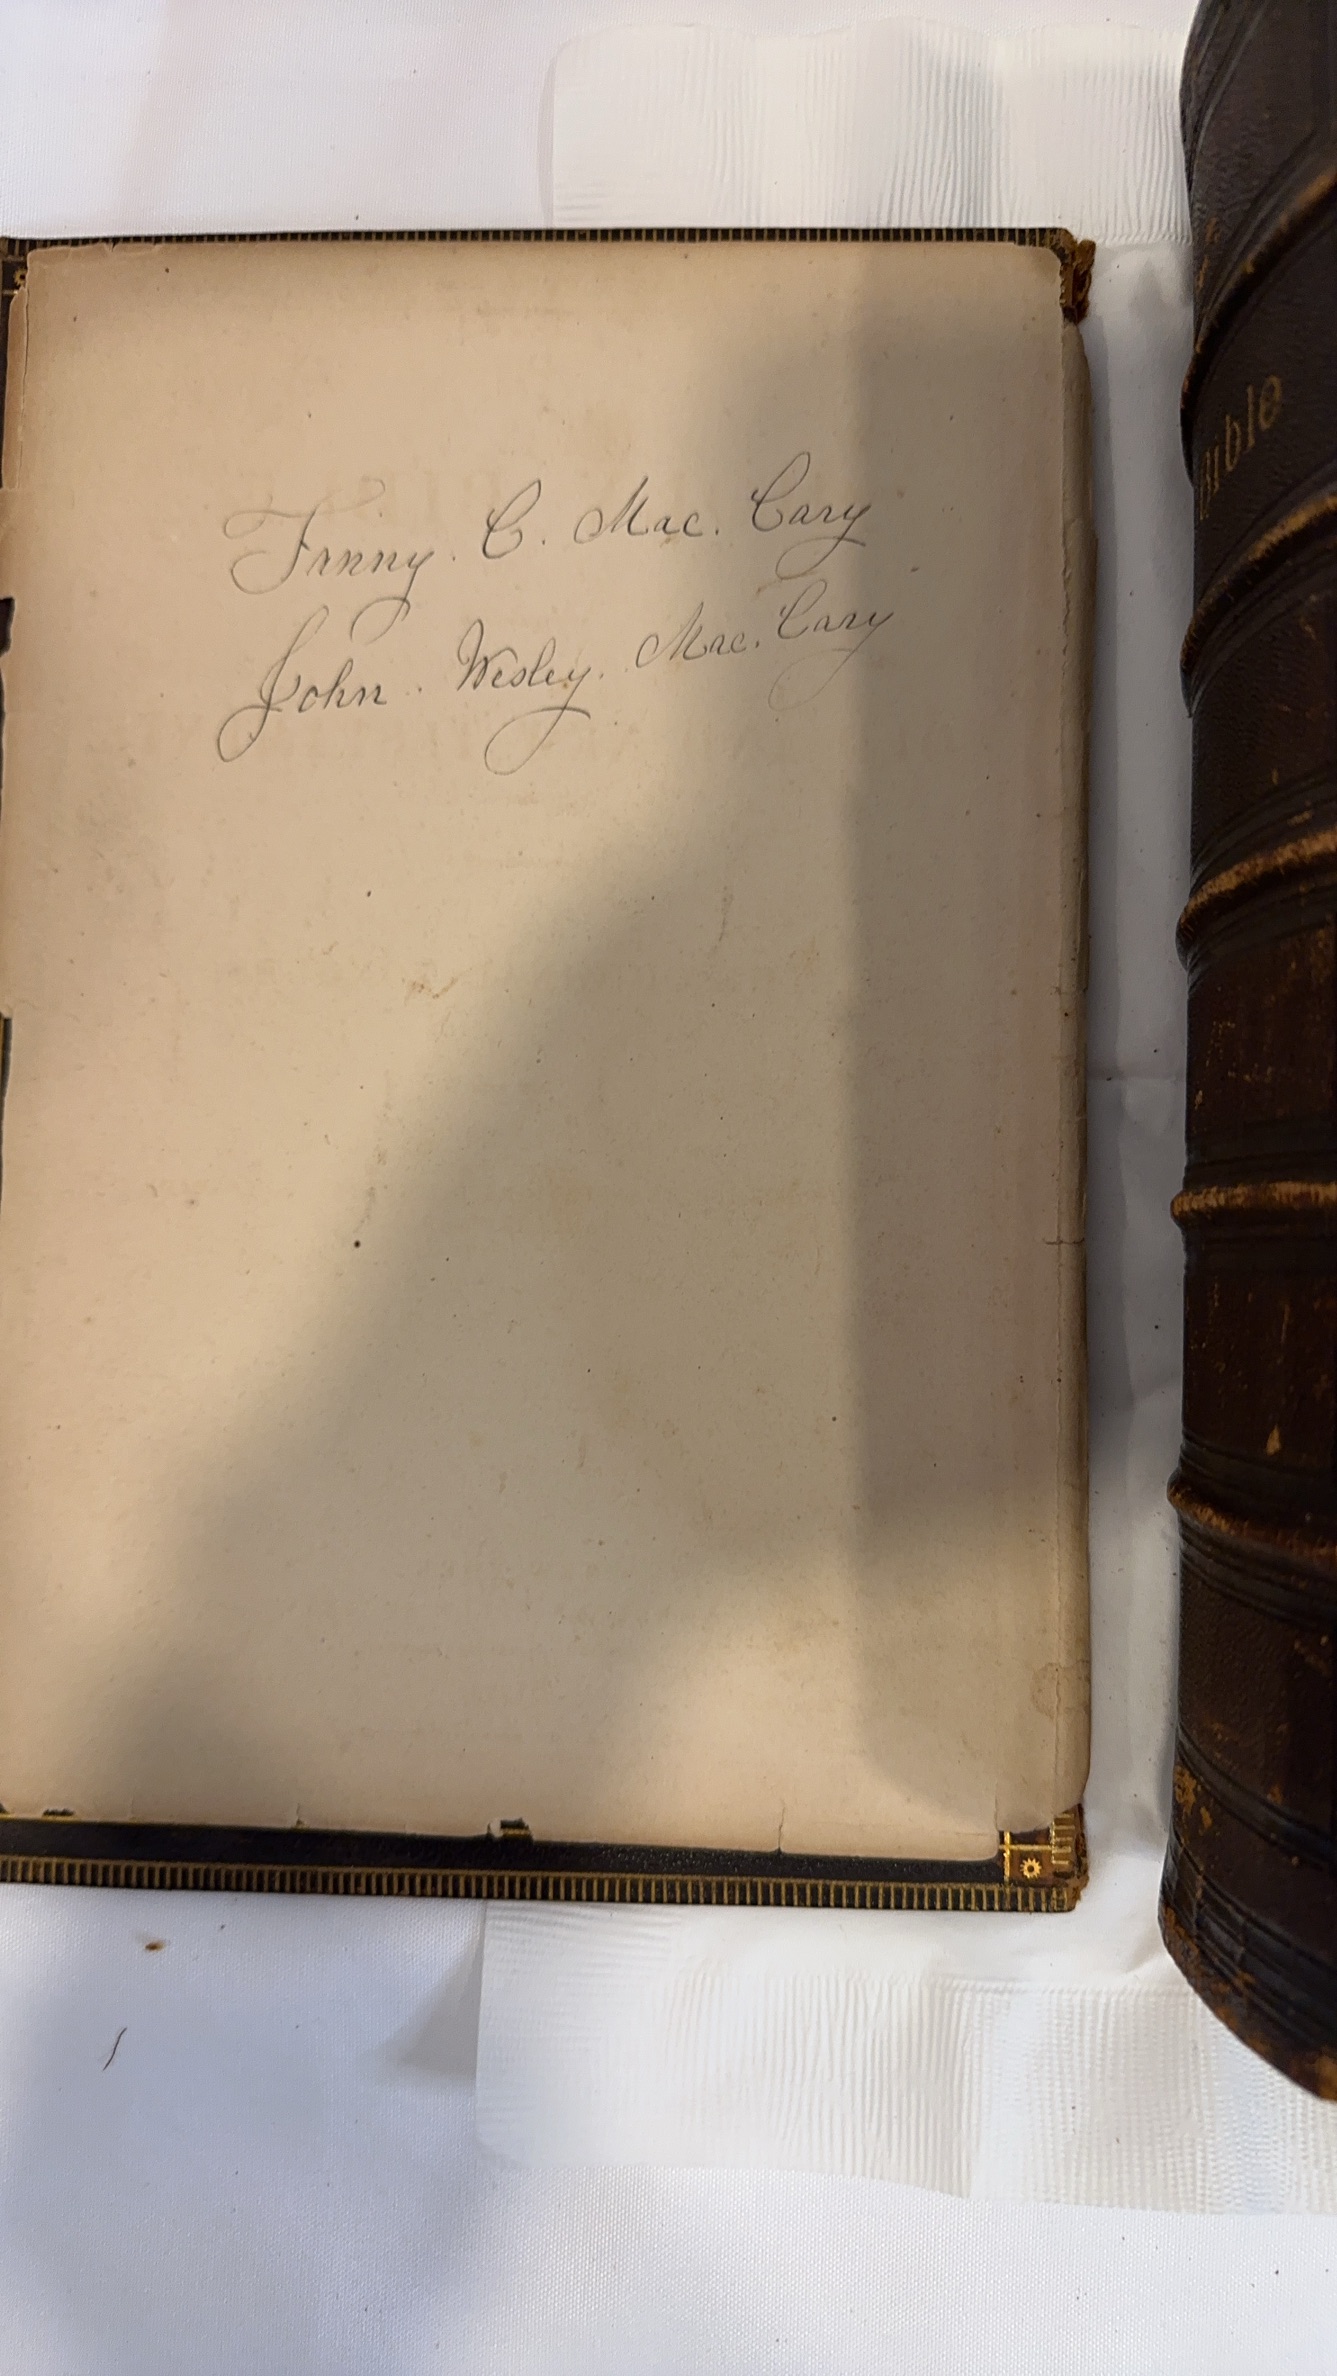 Fanny. C. Mac. Cary
John. Wesley. Mac. Cary
Bible